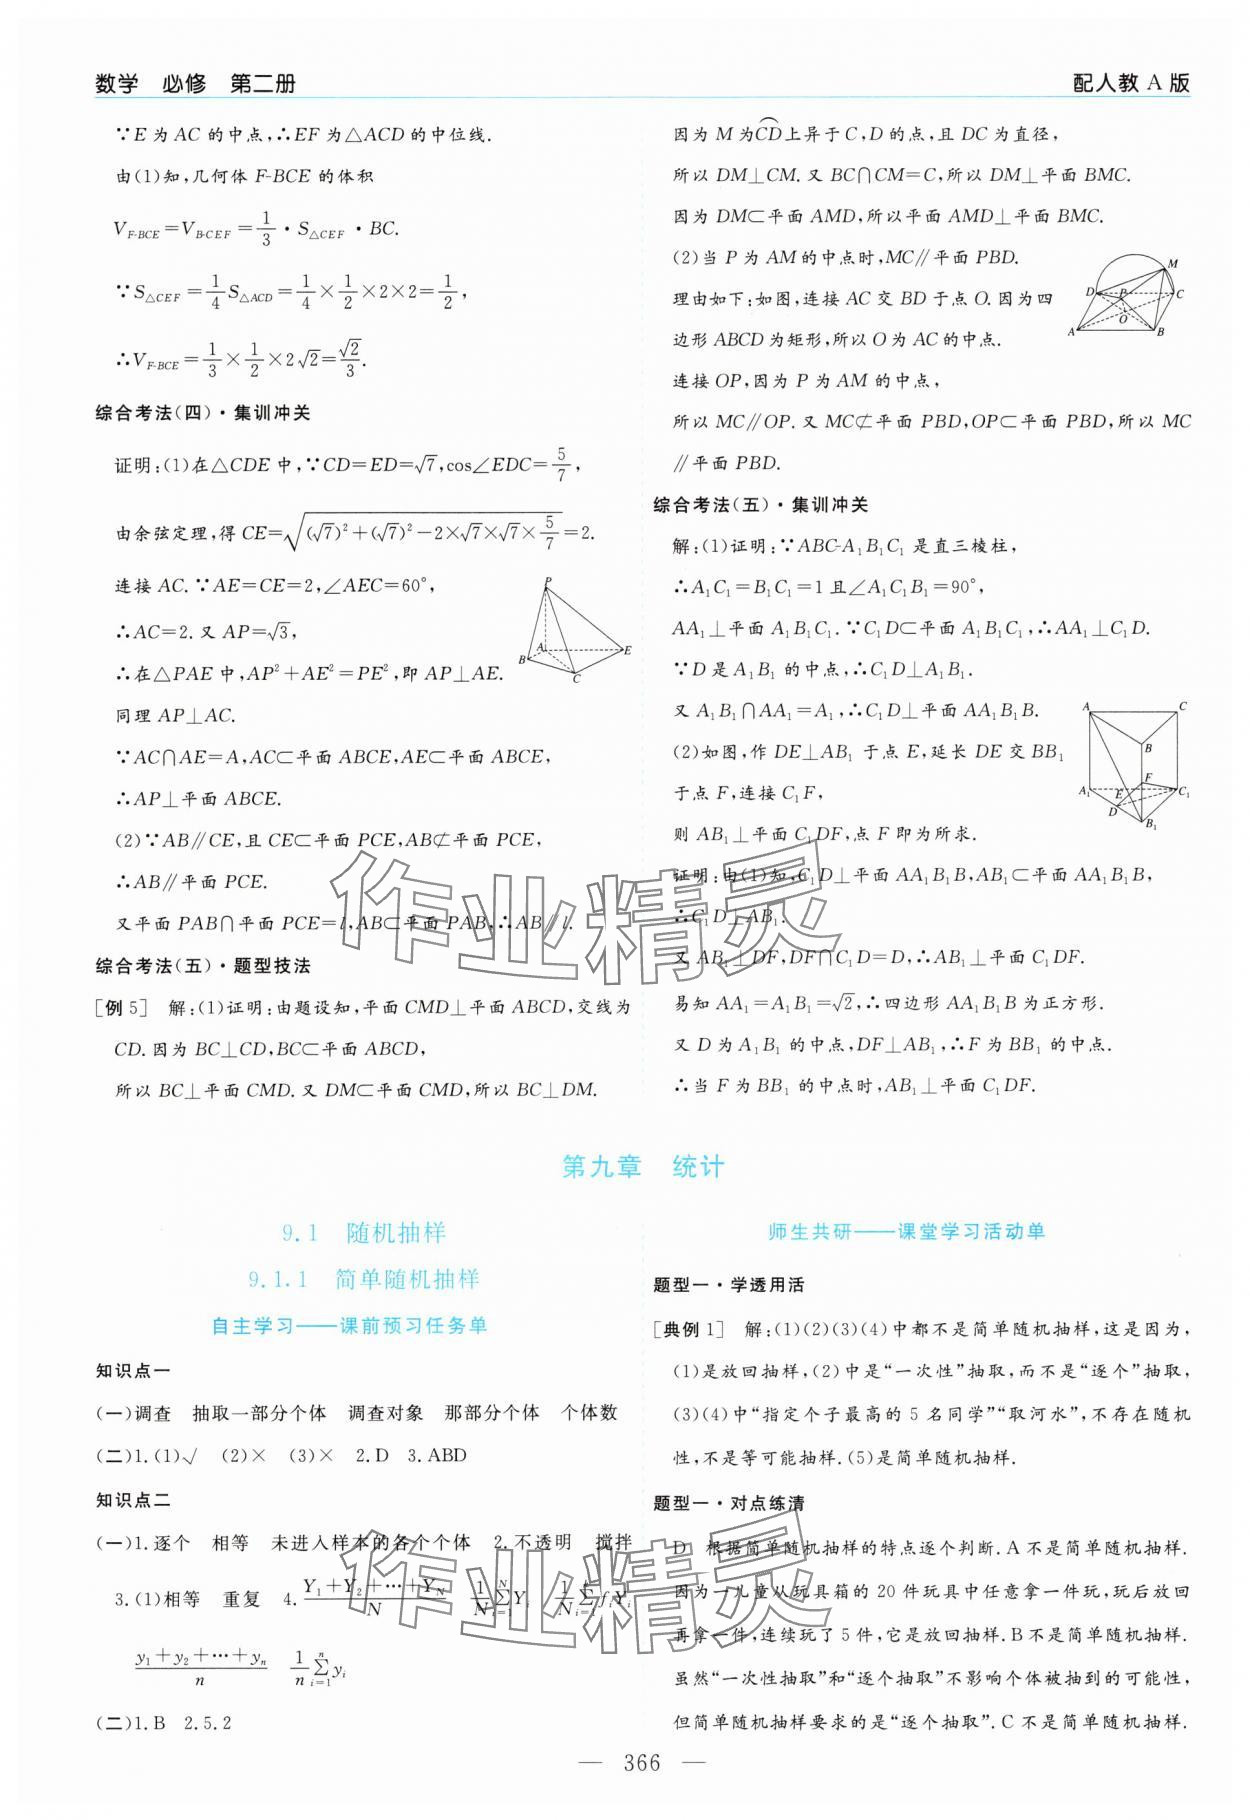 数学　必修　第二册
配人教 A 版
∵E 为 AC 的中点,∴EF 为△ACD 的中位线.
由(1)知,几何体 F-BCE 的体积
V_{F-BCE}=V_{B-CEF}=1/3·S_{△CEF}·BC.
∵S_{△CEF}=1/4 S_{△ACD}=1/4×1/2×2×2=1/2,
∴V_{F-BCE}=1/3×1/2×2√2=√2/3.
综合考法(四)·集训冲关
证明:(1)在△CDE 中,∵CD=ED=√7,cos∠EDC=5/7,
由余弦定理,得 CE=√((√7)²+(√7)²-2×√7×√7×5/7)=2.
连接 AC.∵AE=CE=2,∠AEC=60°,
∴AC=2.又 AP=√3,
∴在△PAE 中,AP²+AE²=PE²,即 AP⊥AE.
同理 AP⊥AC.
∵AC∩AE=A,AC⊂平面 ABCE,AE⊂平面 ABCE,
∴AP⊥平面 ABCE.
(2)∵AB∥CE,且 CE⊂平面 PCE,AB⊄平面 PCE,
∴AB∥平面 PCE.
又平面 PAB∩平面 PCE=l,AB⊂平面 PAB,∴AB∥l.
P
A
B
C
E
综合考法(五)·题型技法
[例 5]　解:(1)证明:由题设知,平面 CMD⊥平面 ABCD,交线为
CD.因为 BC⊥CD,BC⊂平面 ABCD,
所以 BC⊥平面 CMD.又 DM⊂平面 CMD,所以 BC⊥DM.
因为 M 为C͡D上异于 C,D 的点,且 DC 为直径,
所以 DM⊥CM.又 BC∩CM=C,所以 DM⊥平面 BMC.
因为 DM⊂平面 AMD,所以平面 AMD⊥平面 BMC.
(2)当 P 为 AM 的中点时,MC∥平面 PBD.
理由如下:如图,连接 AC 交 BD 于点 O.因为四
边形 ABCD 为矩形,所以 O 为 AC 的中点.
连接 OP,因为 P 为 AM 的中点,
所以 MC∥OP.又 MC⊄平面 PBD,OP⊂平面 PBD,所以 MC
∥平面 PBD.
M
D
P
C
O
A
B
综合考法(五)·集训冲关
解:(1)证明:∵ABC-A₁B₁C₁ 是直三棱柱,
∴A₁C₁=B₁C₁=1 且∠A₁C₁B₁=90°,
AA₁⊥平面 A₁B₁C₁.∵C₁D⊂平面 A₁B₁C₁,∴AA₁⊥C₁D.
∵D 是 A₁B₁ 的中点,∴C₁D⊥A₁B₁.
又 A₁B₁∩AA₁=A₁,∴C₁D⊥平面 AA₁B₁B.
(2)如图,作 DE⊥AB₁ 于点 E,延长 DE 交 BB₁
于点 F,连接 C₁F,
则 AB₁⊥平面 C₁DF,点 F 即为所求.
证明:由(1)知,C₁D⊥平面 AA₁B₁B,AB₁⊂平面 AA₁B₁B,
∴C₁D⊥AB₁.
又 AB₁⊥DF,DF∩C₁D=D,∴AB₁⊥平面 C₁DF.
易知 AA₁=A₁B₁=√2,∴四边形 AA₁B₁B 为正方形.
又 D 为 A₁B₁ 的中点,DF⊥AB₁,∴F 为 BB₁ 的中点.
∴当 F 为 BB₁ 的中点时,AB₁⊥平面 C₁DF.
A
C
B
F
A₁
E
C₁
D
B₁
第九章　统计
9.1　随机抽样
9.1.1　简单随机抽样
自主学习——课前预习任务单
知识点一
(一)调查　抽取一部分个体　调查对象　那部分个体　个体数
(二)1.(1)√　(2)×　(3)×　2.D　3.ABD
知识点二
(一)1.逐个　相等　未进入样本的各个个体　2.不透明　搅拌
3.(1)相等　重复　4.(Y₁+Y₂+⋯+Y_N)/N　1/N ∑_{i=1}^{N} Y_i　1/N ∑_{i=1}^{k} f_i Y_i
(y₁+y₂+⋯+y_n)/n　1/n ∑_{i=1}^{n} y_i
(二)1.B　2.5.2
师生共研——课堂学习活动单
题型一·学透用活
[典例 1]　解:(1)(2)(3)(4)中都不是简单随机抽样,这是因为,
(1)是放回抽样,(2)中是“一次性”抽取,而不是“逐个”抽取,
(3)(4)中“指定个子最高的 5 名同学”“取河水”,不存在随机
性,不是等可能抽样.(5)是简单随机抽样.
题型一·对点练清
D　根据简单随机抽样的特点逐个判断.A 不是简单随机抽样.
因为一儿童从玩具箱的 20 件玩具中任意拿一件玩,玩后放回
再拿一件,连续玩了 5 件,它是放回抽样.B 不是简单随机抽样.
虽然“一次性抽取”和“逐个抽取”不影响个体被抽到的可能性,
但简单随机抽样要求的是“逐个抽取”.C 不是简单随机抽样.
作业精灵
作业精灵
— 366 —